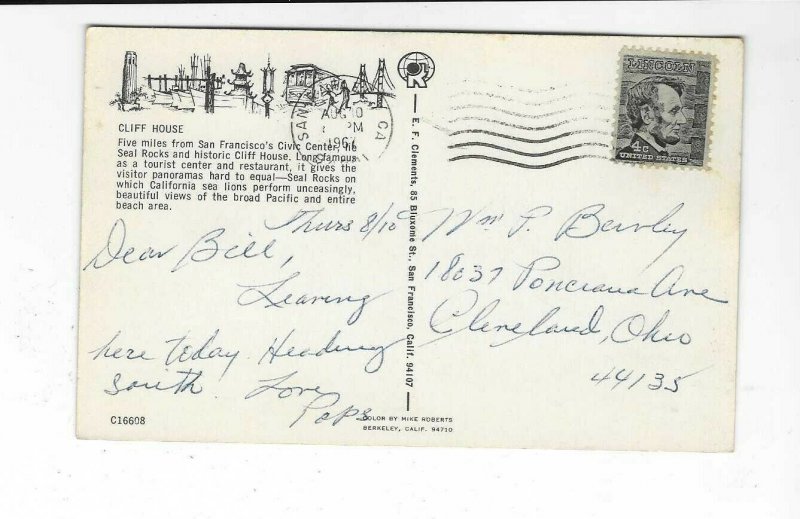 CLIFF HOUSE
Five miles from San Francisco's Civic Center, he
Seal Rocks and historic Cliff House. Long famous
as a tourist center and restaurant, it gives the
visitor panoramas hard to equal—Seal Rocks on
which California sea lions perform unceasingly,
beautiful views of the broad Pacific and entire
beach area.
SAN
CA
AUG 10
PM
1967
LINCOLN
4c
UNITED STATES
E. F. Clements, 85 Bluxome St., San Francisco, Calif. 94107
Thurs 8/10
Dear Bill,
Leaving
here today. Heading
south. Love
Pops
Wm P.
18037 Ponciana Ave
Cleveland, Ohio
44135
C16608
COLOR BY MIKE ROBERTS
BERKELEY, CALIF. 94710